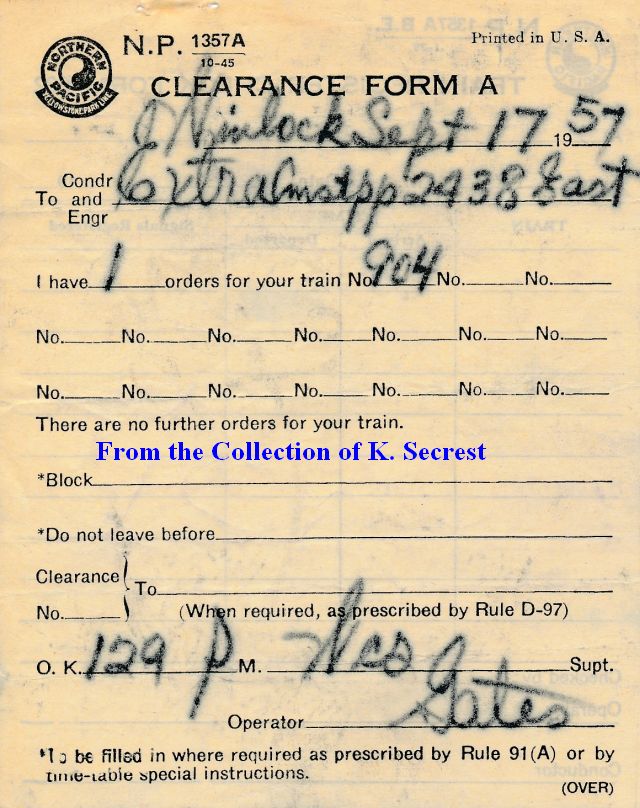 NORTHERN PACIFIC
YELLOWSTONE PARK LINE
N.P. 1357A
10-45
Printed in U. S. A.
CLEARANCE FORM A
Sept 17 1957
Condr
To and Extra 2938 East
Engr
I have 1 orders for your train No. 904 No. No.
No. No. No. No. No. No. No.
No. No. No. No. No. No. No.
There are no further orders for your train.
From the Collection of K. Secrest
*Block
*Do not leave before
Clearance
To
No. (When required, as prescribed by Rule D-97)
O. K. 129 P M. Supt.
Operator Gates
*To be filled in where required as prescribed by Rule 91(A) or by
time-table special instructions.
(OVER)